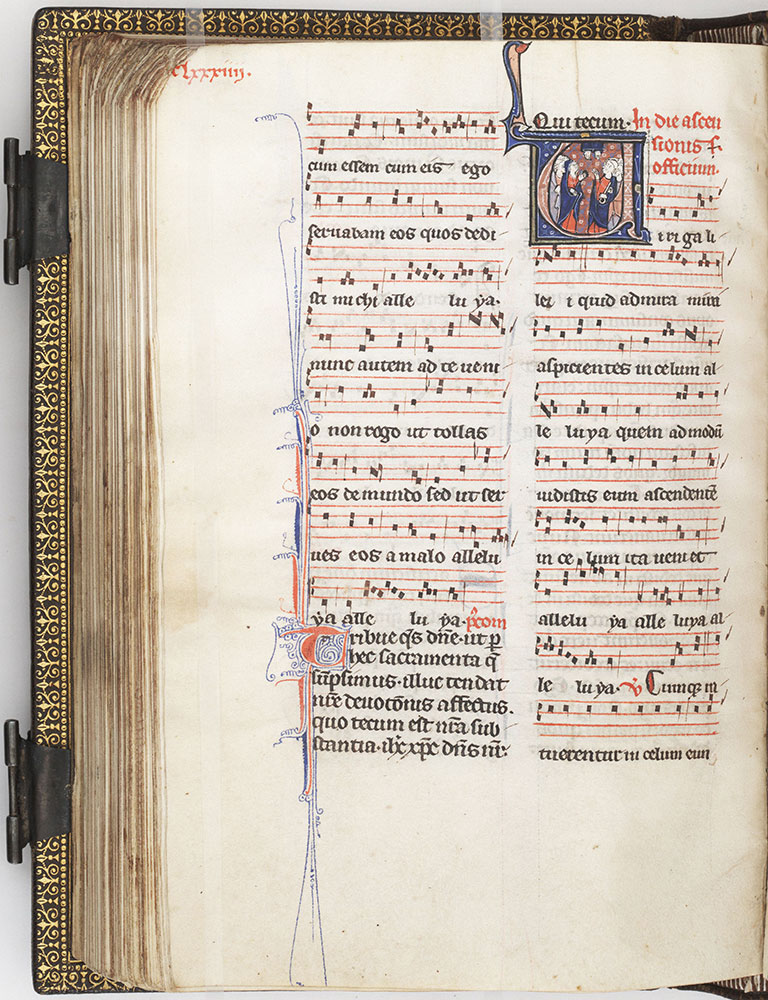 clxxxiiij.
cum essem cum eis ego
seruabam eos quos dedi
sti michi alle lu ya.
nunc autem ad te ueni
o non rogo ut tollas
eos de mundo sed ut ser
ues eos a malo allelu
ya alle lu ya. p̄com
Tribue qs dn̄e. ut ꝑ
hec sacramenta q̄
sūpsimus. illuc tendat
nr̄e deuoc̄onis affectus.
quo tecum est nr̄a sub
stantia. ih̄c xp̄c dn̄s nr̄.
Qui tecum. In die ascen
sionis
officium.
Uiri gali
lei quid admira mini
aspicientes in celum al
le luya quem admodū
uidistis eum ascendentē
in ce lum ita ueniet
allelu ya alle luya al
le lu ya. V̄ Cumqꝫ in
tuerentur in celum eun